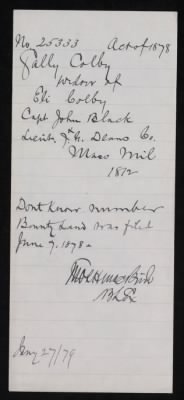 No. 25333 Act of 1878
Sally Colby
widow of
Eli Colby
Capt John Black
Lieut G. Deans Co.
Mass Mil
1812
Dont know number
Bounty Land was filed
June 7. 1878
Jany 27/79